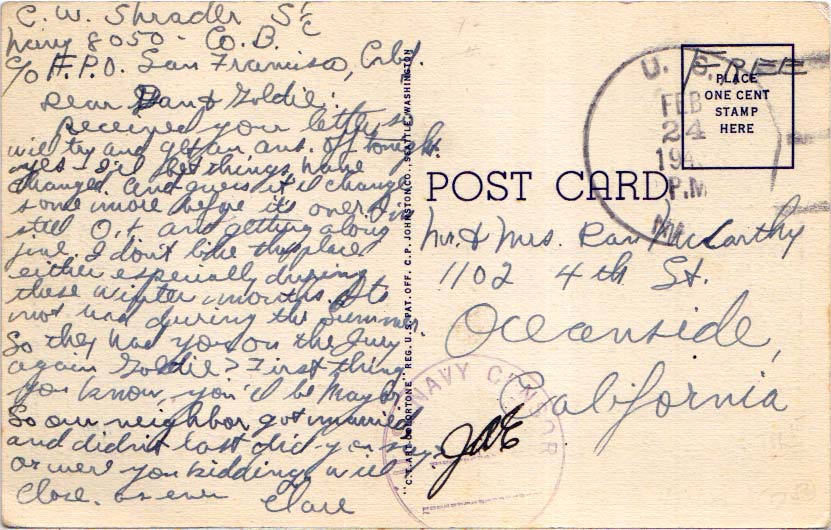 C. W. Shrader S 1/c
Navy 8050 - Co. B.
c/o F.P.O. San Francisco, Calif.
Dear Dan & Goldie;
Received your letter so
will try and get an ans. off tonight.
yes - I'll bet things have
changed. And guess it'll change
some more before it's over. I'm
still O.K. and getting along
fine. I don't like this place
either especially during
these winter months. Its
not bad during the summer.
So they had you on the Jury
again Goldie? First thing
you know, you'll be Mayor.
So our neighbor got married
and didn't last did you say
or were you kidding. will
close. as ever
Clare
"C.T. ART-COLORTONE" REG. U.S. PAT. OFF. C.P. JOHNSTON CO., SEATTLE, WASHINGTON
POST CARD
U. S.
FEB
24
194
P.M.
FREE
PLACE
ONE CENT
STAMP
HERE
Mr. & Mrs. Dan McCarthy
1102 4th St.
Oceanside,
California
NAVY CENSOR